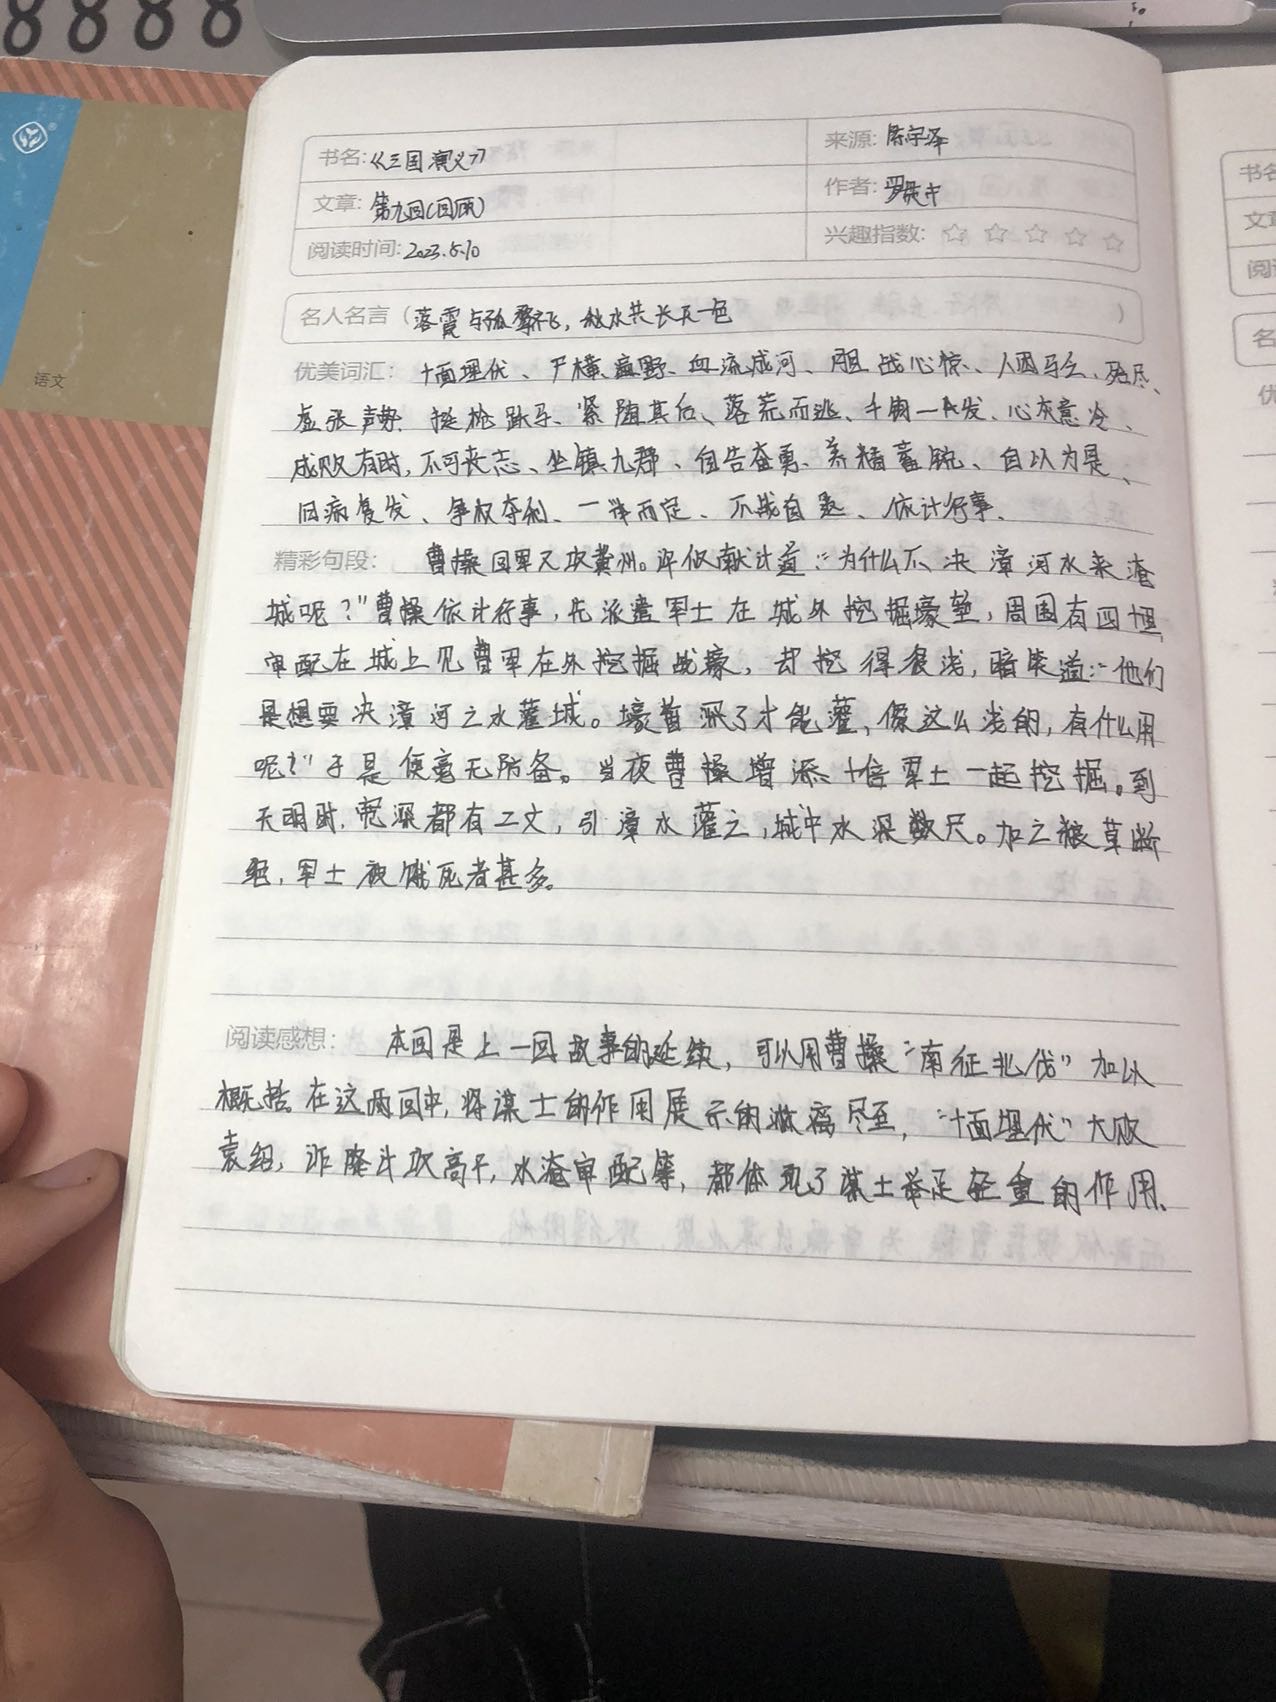 8888
语文
书名:《三国演义》
来源: 陈宇泽
文章: 第九回(回顾)
作者: 罗贯中
阅读时间: 2023.5.10
兴趣指数: ☆ ☆ ☆ ☆ ☆
名人名言 ( 落霞与孤鹜齐飞，秋水共长天一色 )
优美词汇: 十面埋伏、尸横遍野、血流成河、胆战心惊、人困马乏、殆尽、
虚张声势 挺枪跃马、紧随其后、落荒而逃、千钧一发、心灰意冷、
成败有时，不可丧志、坐镇九郡、自告奋勇、养精蓄锐、自以为是、
旧病复发、争权夺利、一举而定、不战自 、依计行事、
精彩句段: 曹操回军又攻冀州。许攸献计道：“为什么不决漳河水来淹
城呢？”曹操依计行事，先派遣军士在城外挖掘壕堑，周围有四十里
审配在城上见曹军在外挖掘战壕，却挖得很浅，暗笑道：“他们
是想要决漳河之水灌城。壕 深了才能灌，像这么浅的，有什么用
呢？”于是便毫无防备。当夜曹操增添十倍军士一起挖掘。到
天明时， 深都有二丈，引漳水灌之，城中水深数尺。加之粮草断
绝，军士被饿死者甚多。
阅读感想: 本回是上一回故事的延续，可以用曹操“南征北伐”加以
概括。在这两回中，将谋士的作用展示的淋漓尽至，“十面埋伏”大败
袁绍，诈降计攻高干，水淹审配等，都体现了谋士举足轻重的作用、
书名
文章
阅读
名
优